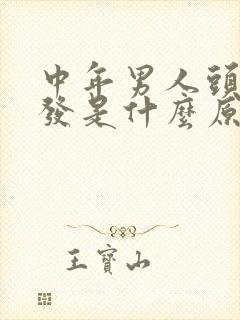 中年男人頭
發是什麼原
王寶山